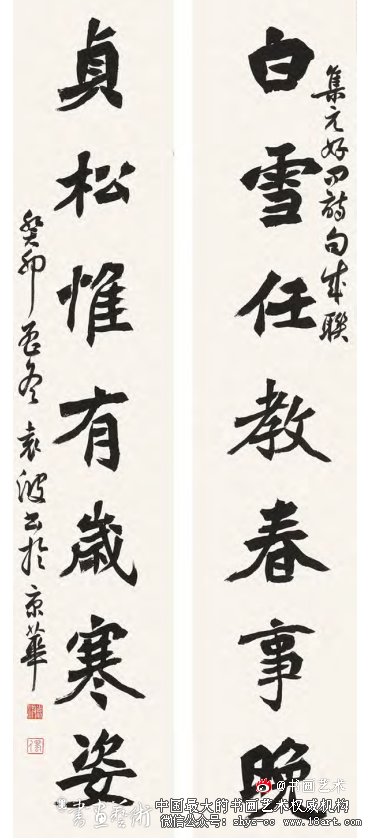 集元好问詩句成聯
白雪任教春事晚
貞松惟有歲寒姿
癸卯孟冬袁波书於京華
@书画艺术
書畫藝術
中国最大的书画艺术权威机构
微信公众号: shys-cc www.18art.com